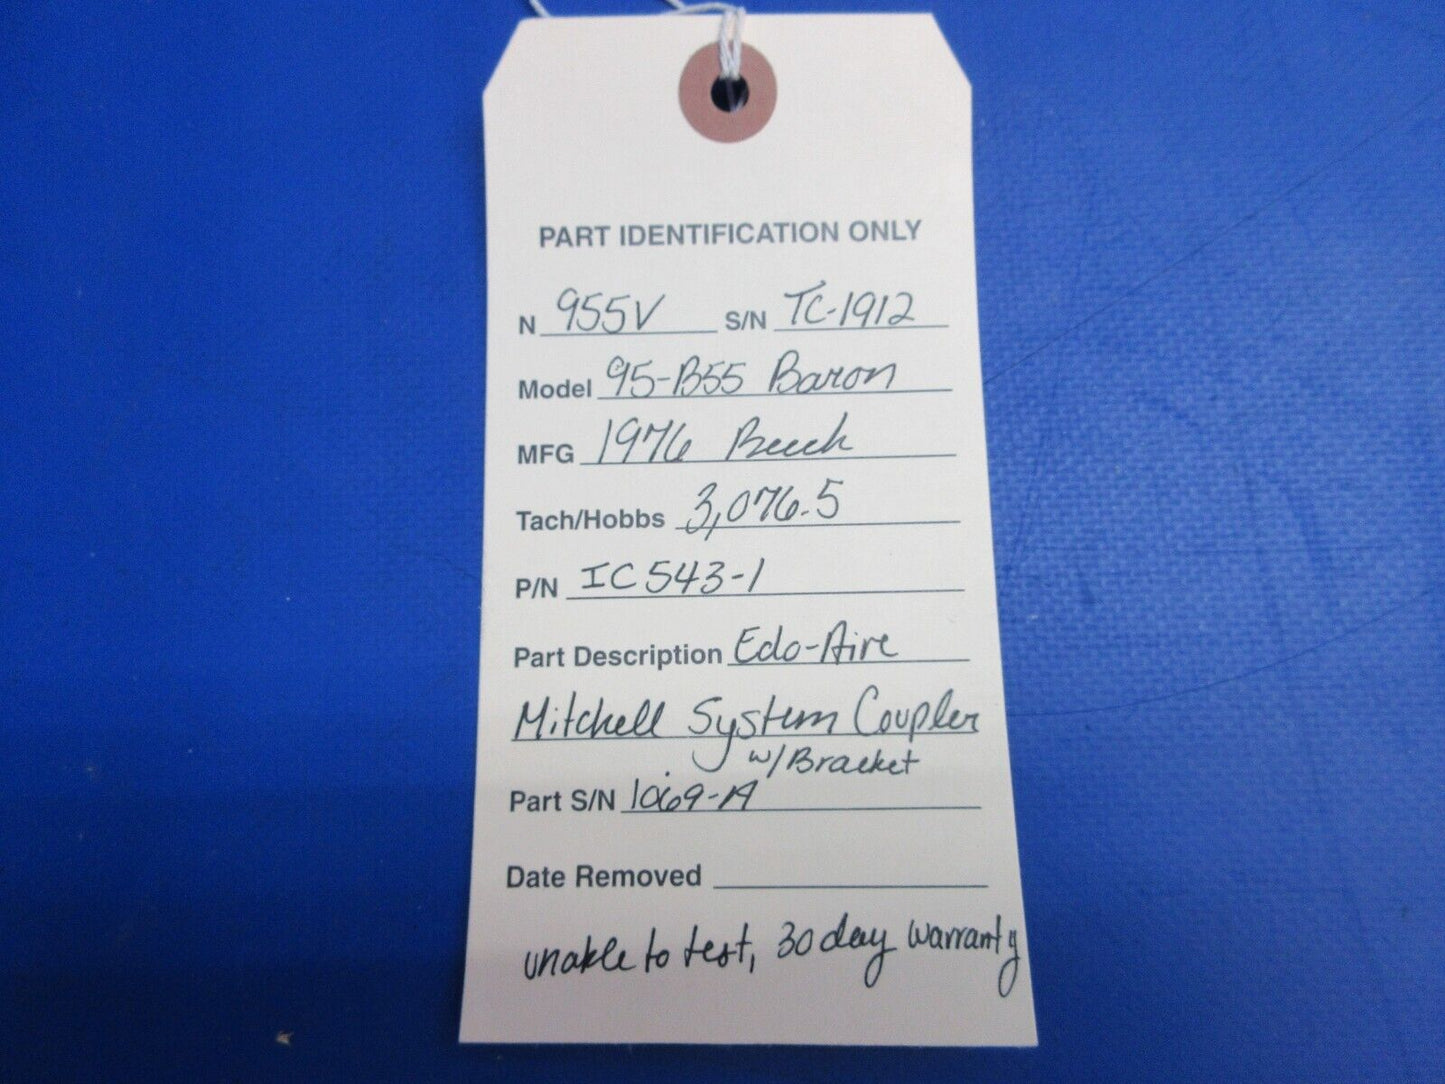 PART IDENTIFICATION ONLY
N 955V S/N TC-1912
Model 95-B55 Baron
MFG 1976 Beech
Tach/Hobbs 3,076.5
P/N IC543-1
Part Description Edo-Aire
Mitchell System Coupler
w/Bracket
Part S/N 1069-A
Date Removed
unable to test, 30 day warranty